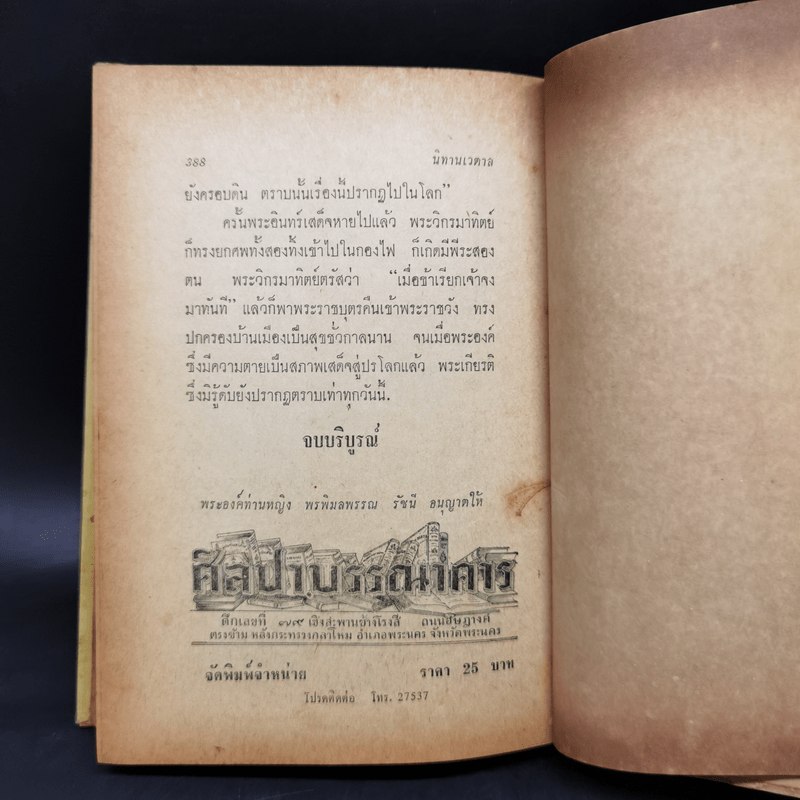 388 นิทานเวตาล
ยังครอบดิน ตราบนั้นเรื่องนี้ปรากฏไปในโลก”
ครั้นพระอินทร์เสด็จหายไปแล้ว พระวิกรมาทิตย์
ก็ทรงยกศพทั้งสองทิ้งเข้าไปในกองไฟ ก็เกิดมีพีระสอง
ตน พระวิกรมาทิตย์ตรัสว่า “เมื่อข้าเรียกเจ้าจง
มาทันที” แล้วก็พาพระราชบุตรคืนเข้าพระราชวัง ทรง
ปกครองบ้านเมืองเป็นสุขชั่วกาลนาน จนเมื่อพระองค์
ซึ่งมีความตายเป็นสภาพเสด็จสู่ปรโลกแล้ว พระเกียรติ
ซึ่งมิรู้ดับยังปรากฏตราบเท่าทุกวันนี้.
จบบริบูรณ์
พระองค์ท่านหญิง พรพิมลพรรณ รัชนี อนุญาตให้
ศิลปาบรรณาคาร
ตึกเลขที่ ๗๙ เชิงสะพานช้างโรงสี ถนนอัษฎางค์
ตรงข้าม หลังกระทรวงกลาโหม อำเภอพระนคร จังหวัดพระนคร
จัดพิมพ์จำหน่าย ราคา 25 บาท
โปรดติดต่อ โทร. 27537